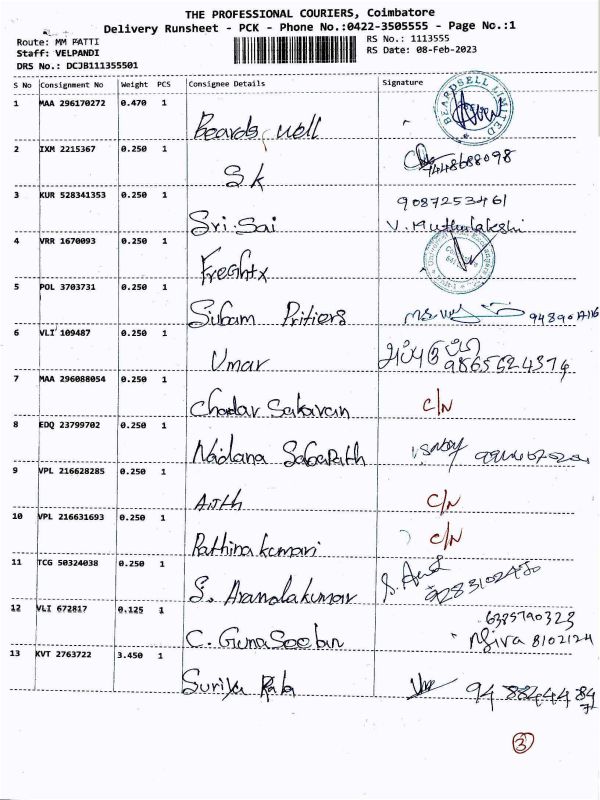 THE PROFESSIONAL COURIERS, Coimbatore
Delivery Runsheet - PCK - Phone No.:0422-3505555 - Page No.:1
Route: MM PATTI
Staff: VELPANDI
DRS No.: DCJB111355501
RS No.: 1113555
RS Date: 08-Feb-2023
S No Consignment No Weight PCS Consignee Details Signature
1 MAA 296170272 0.470 1
BEARDSELL LIMITED
Beards well
2 IXM 2215367 0.250 1
9448688098
SK
3 KUR 528341353 0.250 1
9087253461
Sri.Sai V. Muthulakshi
4 VRR 1670093 0.250 1
Freghtx
5 POL 3703731 0.250 1
Subam Pritiers
6 VLI 109487 0.250 1
Umar 9865624374
7 MAA 296088054 0.250 1
C/N
8 EDQ 23799702 0.250 1
9 VPL 216628285 0.250 1
Ajith C/N
10 VPL 216631693 0.250 1
Pathinakumari C/N
11 TCG 50324038 0.250 1
S.
12 VLI 672817 0.125 1
6385790323
C. 8102124
13 KVT 2763722 3.450 1
Suriya
3